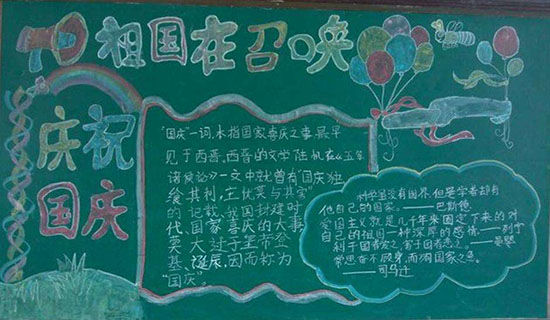 祖国在召唤
庆祝
国庆
"国庆"一词,本指国家喜庆之事,最早
见于西晋,西晋的文学 陆 机在 五等
诸侯论 一文中就曾有"国庆独
飨其利,主忧莫与其害"
的 记载、我国封建时
代、国家喜庆的大事
莫 大 过于 皇帝登
基、诞辰,因而称为
"国庆"。
科学虽没有国界,但是学者却有
他自己的国家。——巴斯德
爱国主义就是几千年来固定下来的对
自己的祖国一种深厚的感情。——列宁
利于国者爱之,害于国者恶之。——晏婴
常思奋不顾身,而殉国家之急。
——司马迁